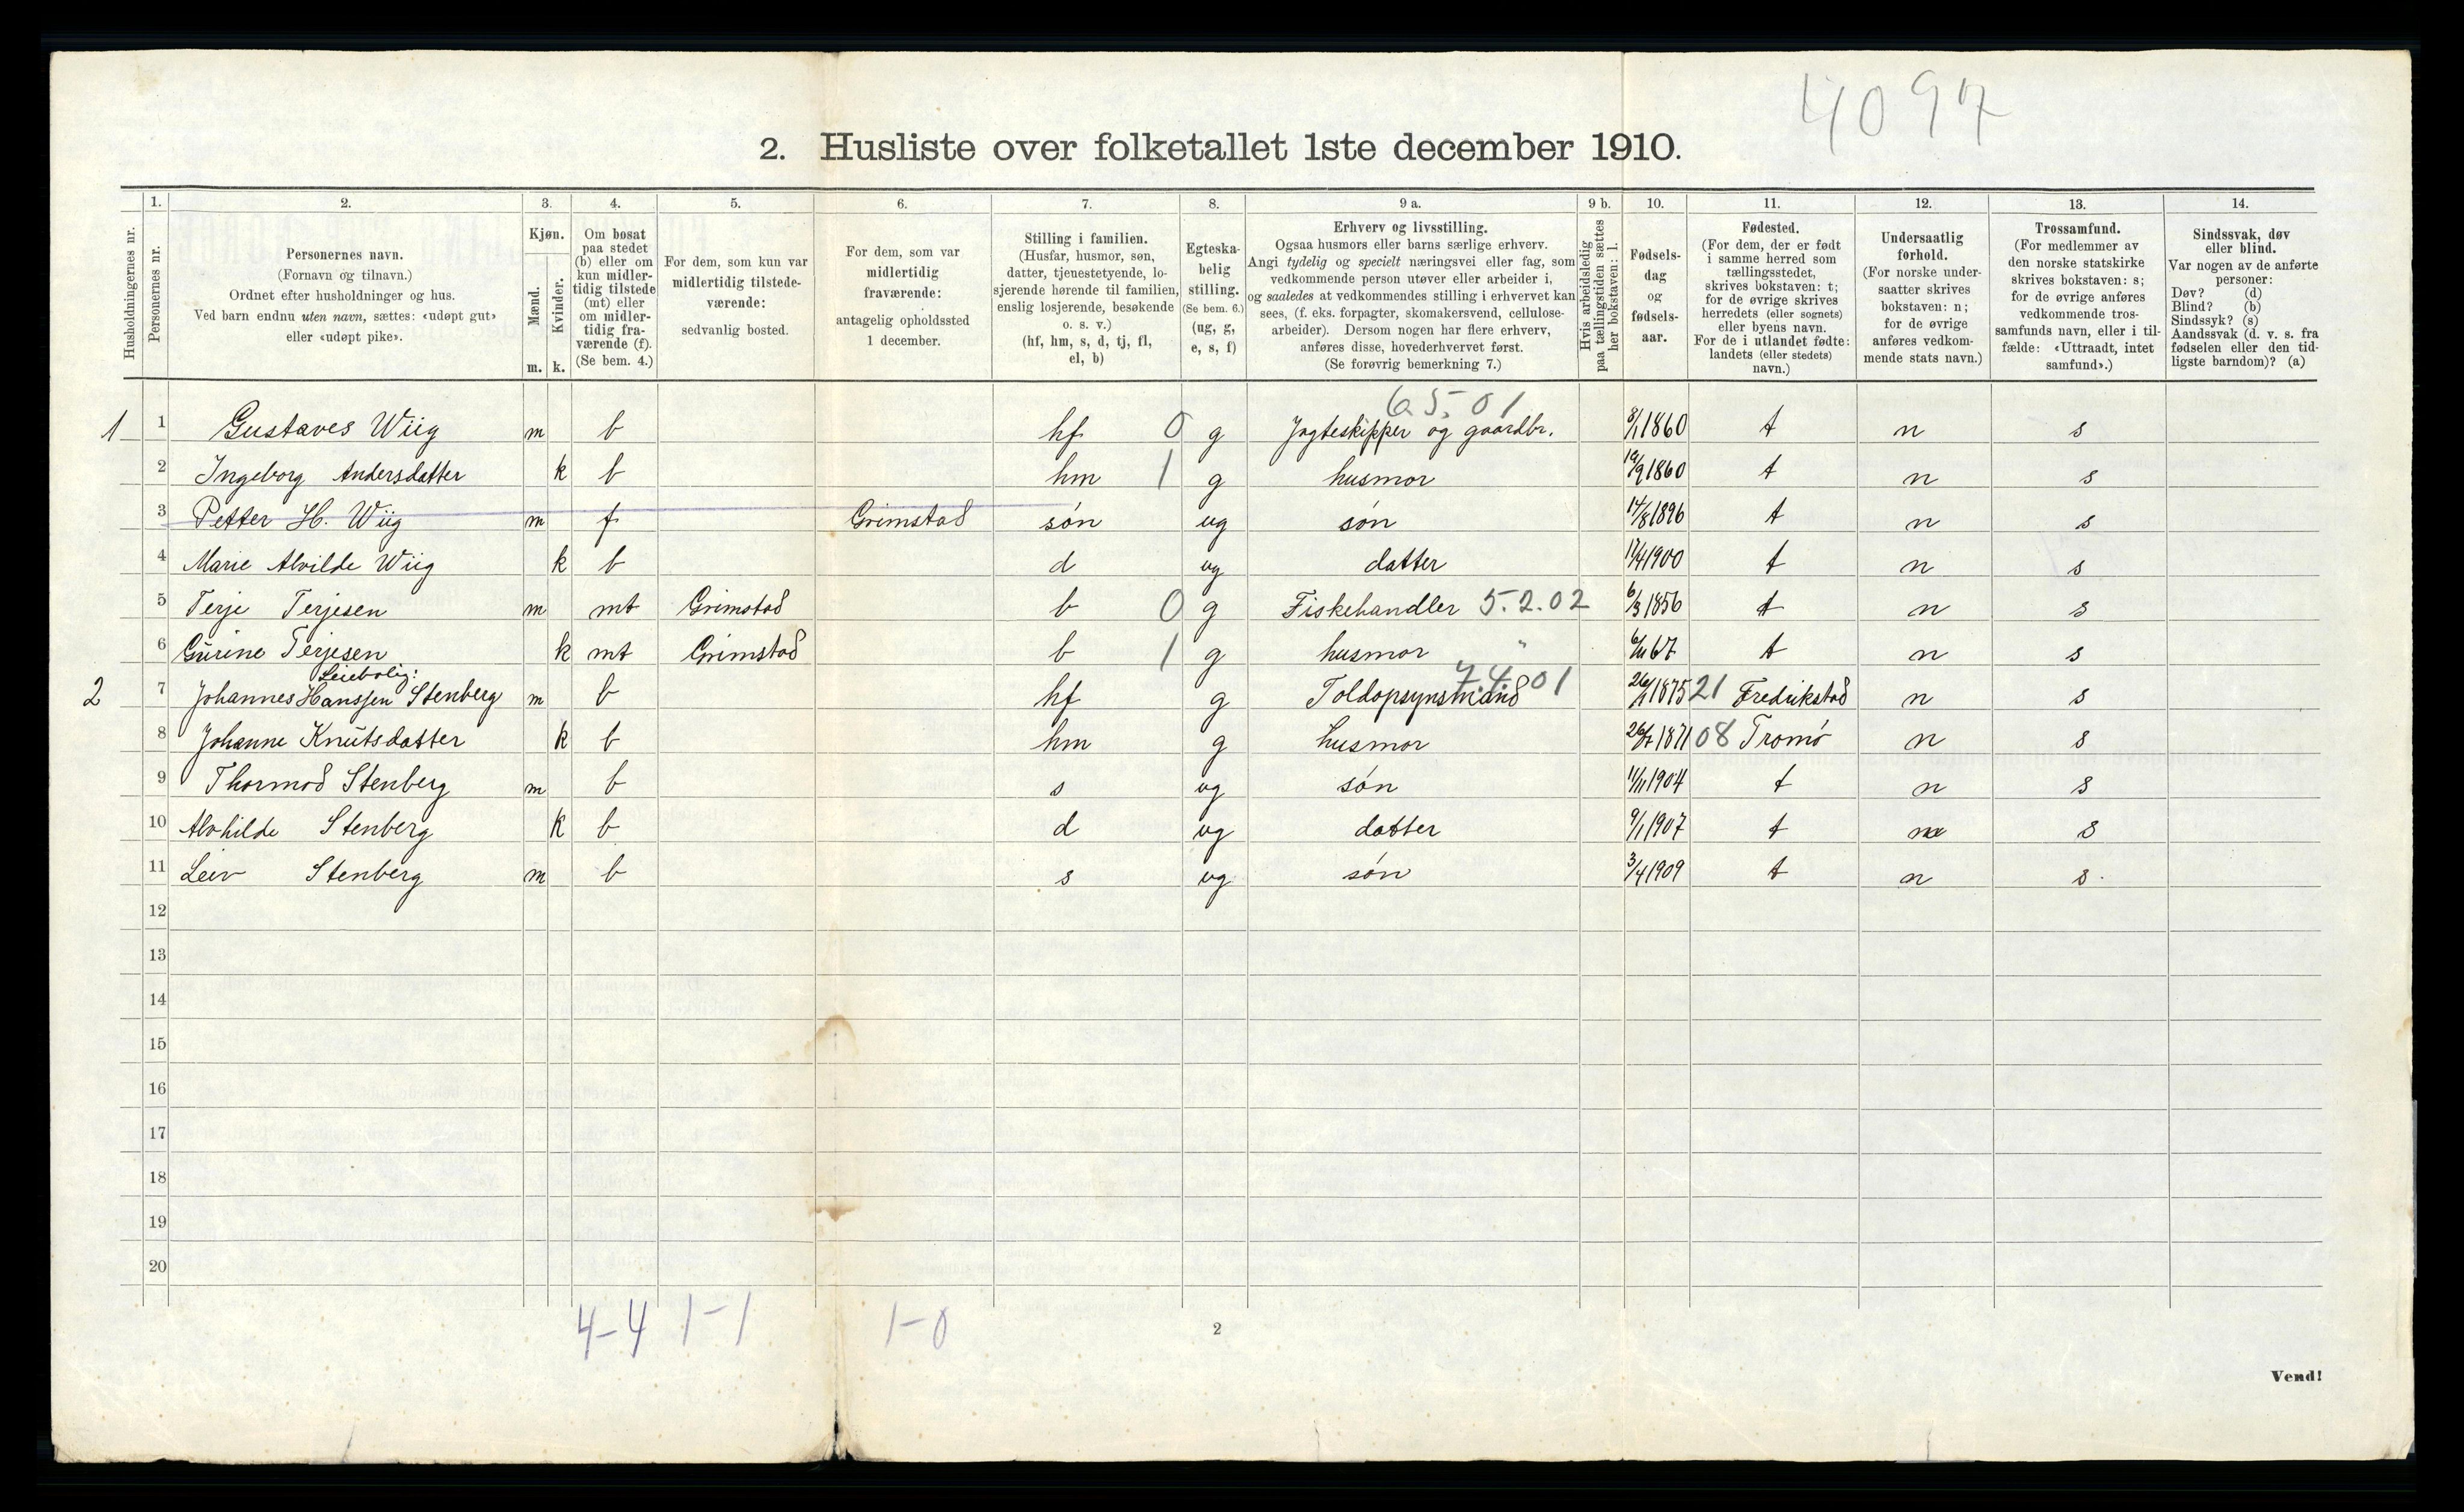 4097
2. Husliste over folketallet 1ste december 1910.
Husholdningernes nr.
1. Personernes nr.
2. Personernes navn. (Fornavn og tilnavn.) Ordnet efter husholdninger og hus. Ved barn endnu uten navn, sættes: «udøpt gut» eller «udøpt pike».
3. Kjøn. Mænd. m. Kvinder. k.
4. Om bosat paa stedet (b) eller om kun midlertidig tilstede (mt) eller om midlertidig fraværende (f). (Se bem. 4.)
5. For dem, som kun var midlertidig tilstedeværende: sedvanlig bosted.
6. For dem, som var midlertidig fraværende: antagelig opholdssted 1 december.
7. Stilling i familien. (Husfar, husmor, søn, datter, tjenestetyende, losjerende hørende til familien, enslig losjerende, besøkende o. s. v.) (hf, hm, s, d, tj, fl, el, b)
8. Egteskabelig stilling. (Se bem. 6.) (ug, g, e, s, f)
9 a. Erhverv og livsstilling. Ogsaa husmors eller barns særlige erhverv. Angi tydelig og specielt næringsvei eller fag, som vedkommende person utøver eller arbeider i, og saaledes at vedkommendes stilling i erhvervet kan sees, (f. eks. forpagter, skomakersvend, cellulosearbeider). Dersom nogen har flere erhverv, anføres disse, hovederhvervet først. (Se forøvrig bemerkning 7.)
9 b. Hvis arbeidsledig paa tællingstiden sættes her bokstaven: l.
10. Fødselsdag og fødselsaar.
11. Fødested. (For dem, der er født i samme herred som tællingsstedet, skrives bokstaven: t; for de øvrige skrives herredets (eller sognets) eller byens navn. For de i utlandet fødte: landets (eller stedets) navn.)
12. Undersaatlig forhold. (For norske undersaatter skrives bokstaven: n; for de øvrige anføres vedkommende stats navn.)
13. Trossamfund. (For medlemmer av den norske statskirke skrives bokstaven: s; for de øvrige anføres vedkommende trossamfunds navn, eller i tilfælde: «Uttraadt, intet samfund».)
14. Sindssvak, døv eller blind. Var nogen av de anførte personer: Døv? (d) Blind? (b) Sindssyk? (s) Aandssvak (d. v. s. fra fødselen eller den tidligste barndom)? (a)
6.5.01
1 1 Gustaves Wiig m b hf 0 g Jagteskipper og gaardbr. 8/1 1860 t n s
2 Ingeborg Andersdatter k b hm 1 g husmor 19/9 1860 t n s
3 Petter H. Wiig m f Grimstad søn ug søn 14/8 1896 t n s
4 Marie Alvilde Wiig k b d ug datter 17/4 1900 t n s
5 Terje Terjesen m mt Grimstad b 0 g Fiskehandler 5.2.02 6/3 1856 t n s
6 Gurine Terjesen k mt Grimstad b 1 g husmor " 67 t n s
Leiebolig: 7.4.01
2 7 Johannes Hanssen Stenberg m b hf g Toldopsynsmand 1875 21 Fredrikstad n s
8 Johanne Knutsdatter k b hm g husmor 1871 08 Tromø n s
9 Thormod Stenberg m b s ug søn 11/11 1904 t n s
10 Alvhilde Stenberg k b d ug datter 9/1 1907 t n s
11 Leiv Stenberg m b s ug søn 3/4 1909 t n s.
12
13
14
15
16
17
18
19
20
4-4 1-1 1-0
2
Vend!